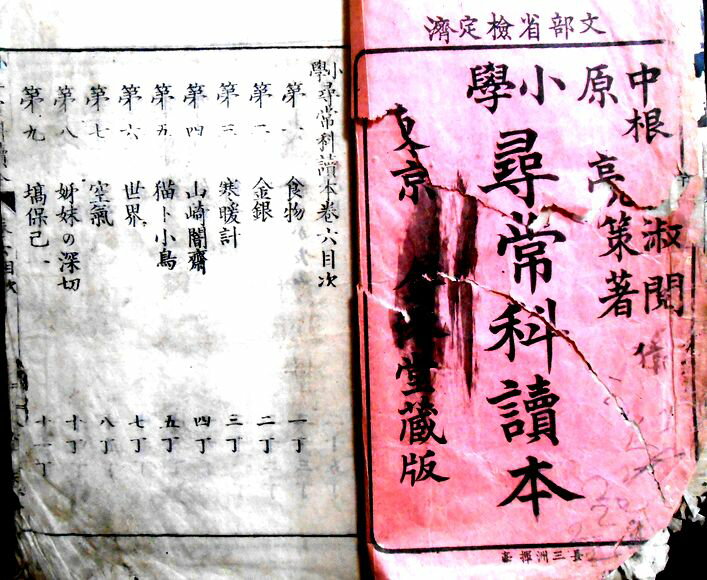 文部省檢定濟
中根淑閲
原亮策著
小學
尋常科讀本
東京 金港堂藏版
長三洲揮毫
小學尋常科讀本卷六目次
第一 食物 一丁
第二 金銀 二丁
第三 寒暖計 三丁
第四 山崎闇齋 四丁
第五 猫ト小鳥 五丁
第六 世界 七丁
第七 空氣 八丁
第八 姊妹の深切 十丁
第九 塙保己一 十一丁